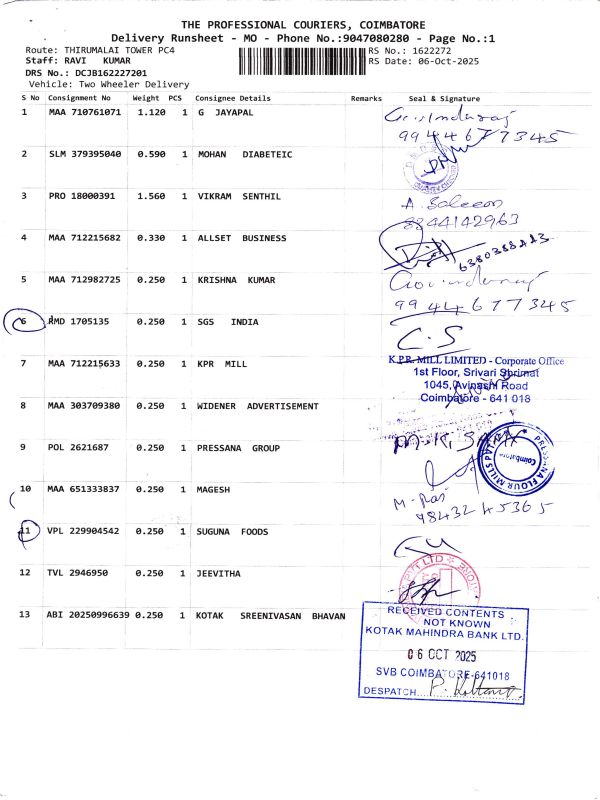 THE PROFESSIONAL COURIERS, COIMBATORE
Delivery Runsheet - MO - Phone No.:9047080280 - Page No.:1
Route: THIRUMALAI TOWER PC4 RS No.: 1622272
Staff: RAVI KUMAR RS Date: 06-Oct-2025
DRS No.: DCJB162227201
Vehicle: Two Wheeler Delivery
S No Consignment No Weight PCS Consignee Details Remarks Seal & Signature
1 MAA 710761071 1.120 1 G JAYAPAL
9944677345
2 SLM 379395040 0.590 1 MOHAN DIABETEIC
3 PRO 18000391 1.560 1 VIKRAM SENTHIL
A. Saleem
8844142963
4 MAA 712215682 0.330 1 ALLSET BUSINESS
5 MAA 712982725 0.250 1 KRISHNA KUMAR
Govindaraj
9944677345
6 RMD 1705135 0.250 1 SGS INDIA
C.S
7 MAA 712215633 0.250 1 KPR MILL
K.P.R. MILL LIMITED - Corporate Office
1st Floor, Srivari Shrimat
1045, Avinashi Road
Coimbatore - 641 018
8 MAA 303709380 0.250 1 WIDENER ADVERTISEMENT
9 POL 2621687 0.250 1 PRESSANA GROUP
PRESSANA FLOUR MILLS PVT LTD
Coimbatore
10 MAA 651333837 0.250 1 MAGESH
M. Raj
9843245365
11 VPL 229904542 0.250 1 SUGUNA FOODS
12 TVL 2946950 0.250 1 JEEVITHA
PVT LTD
13 ABI 20250996639 0.250 1 KOTAK SREENIVASAN BHAVAN
RECEIVED CONTENTS
NOT KNOWN
KOTAK MAHINDRA BANK LTD.
06 OCT 2025
SVB COIMBATORE-641018
DESPATCH